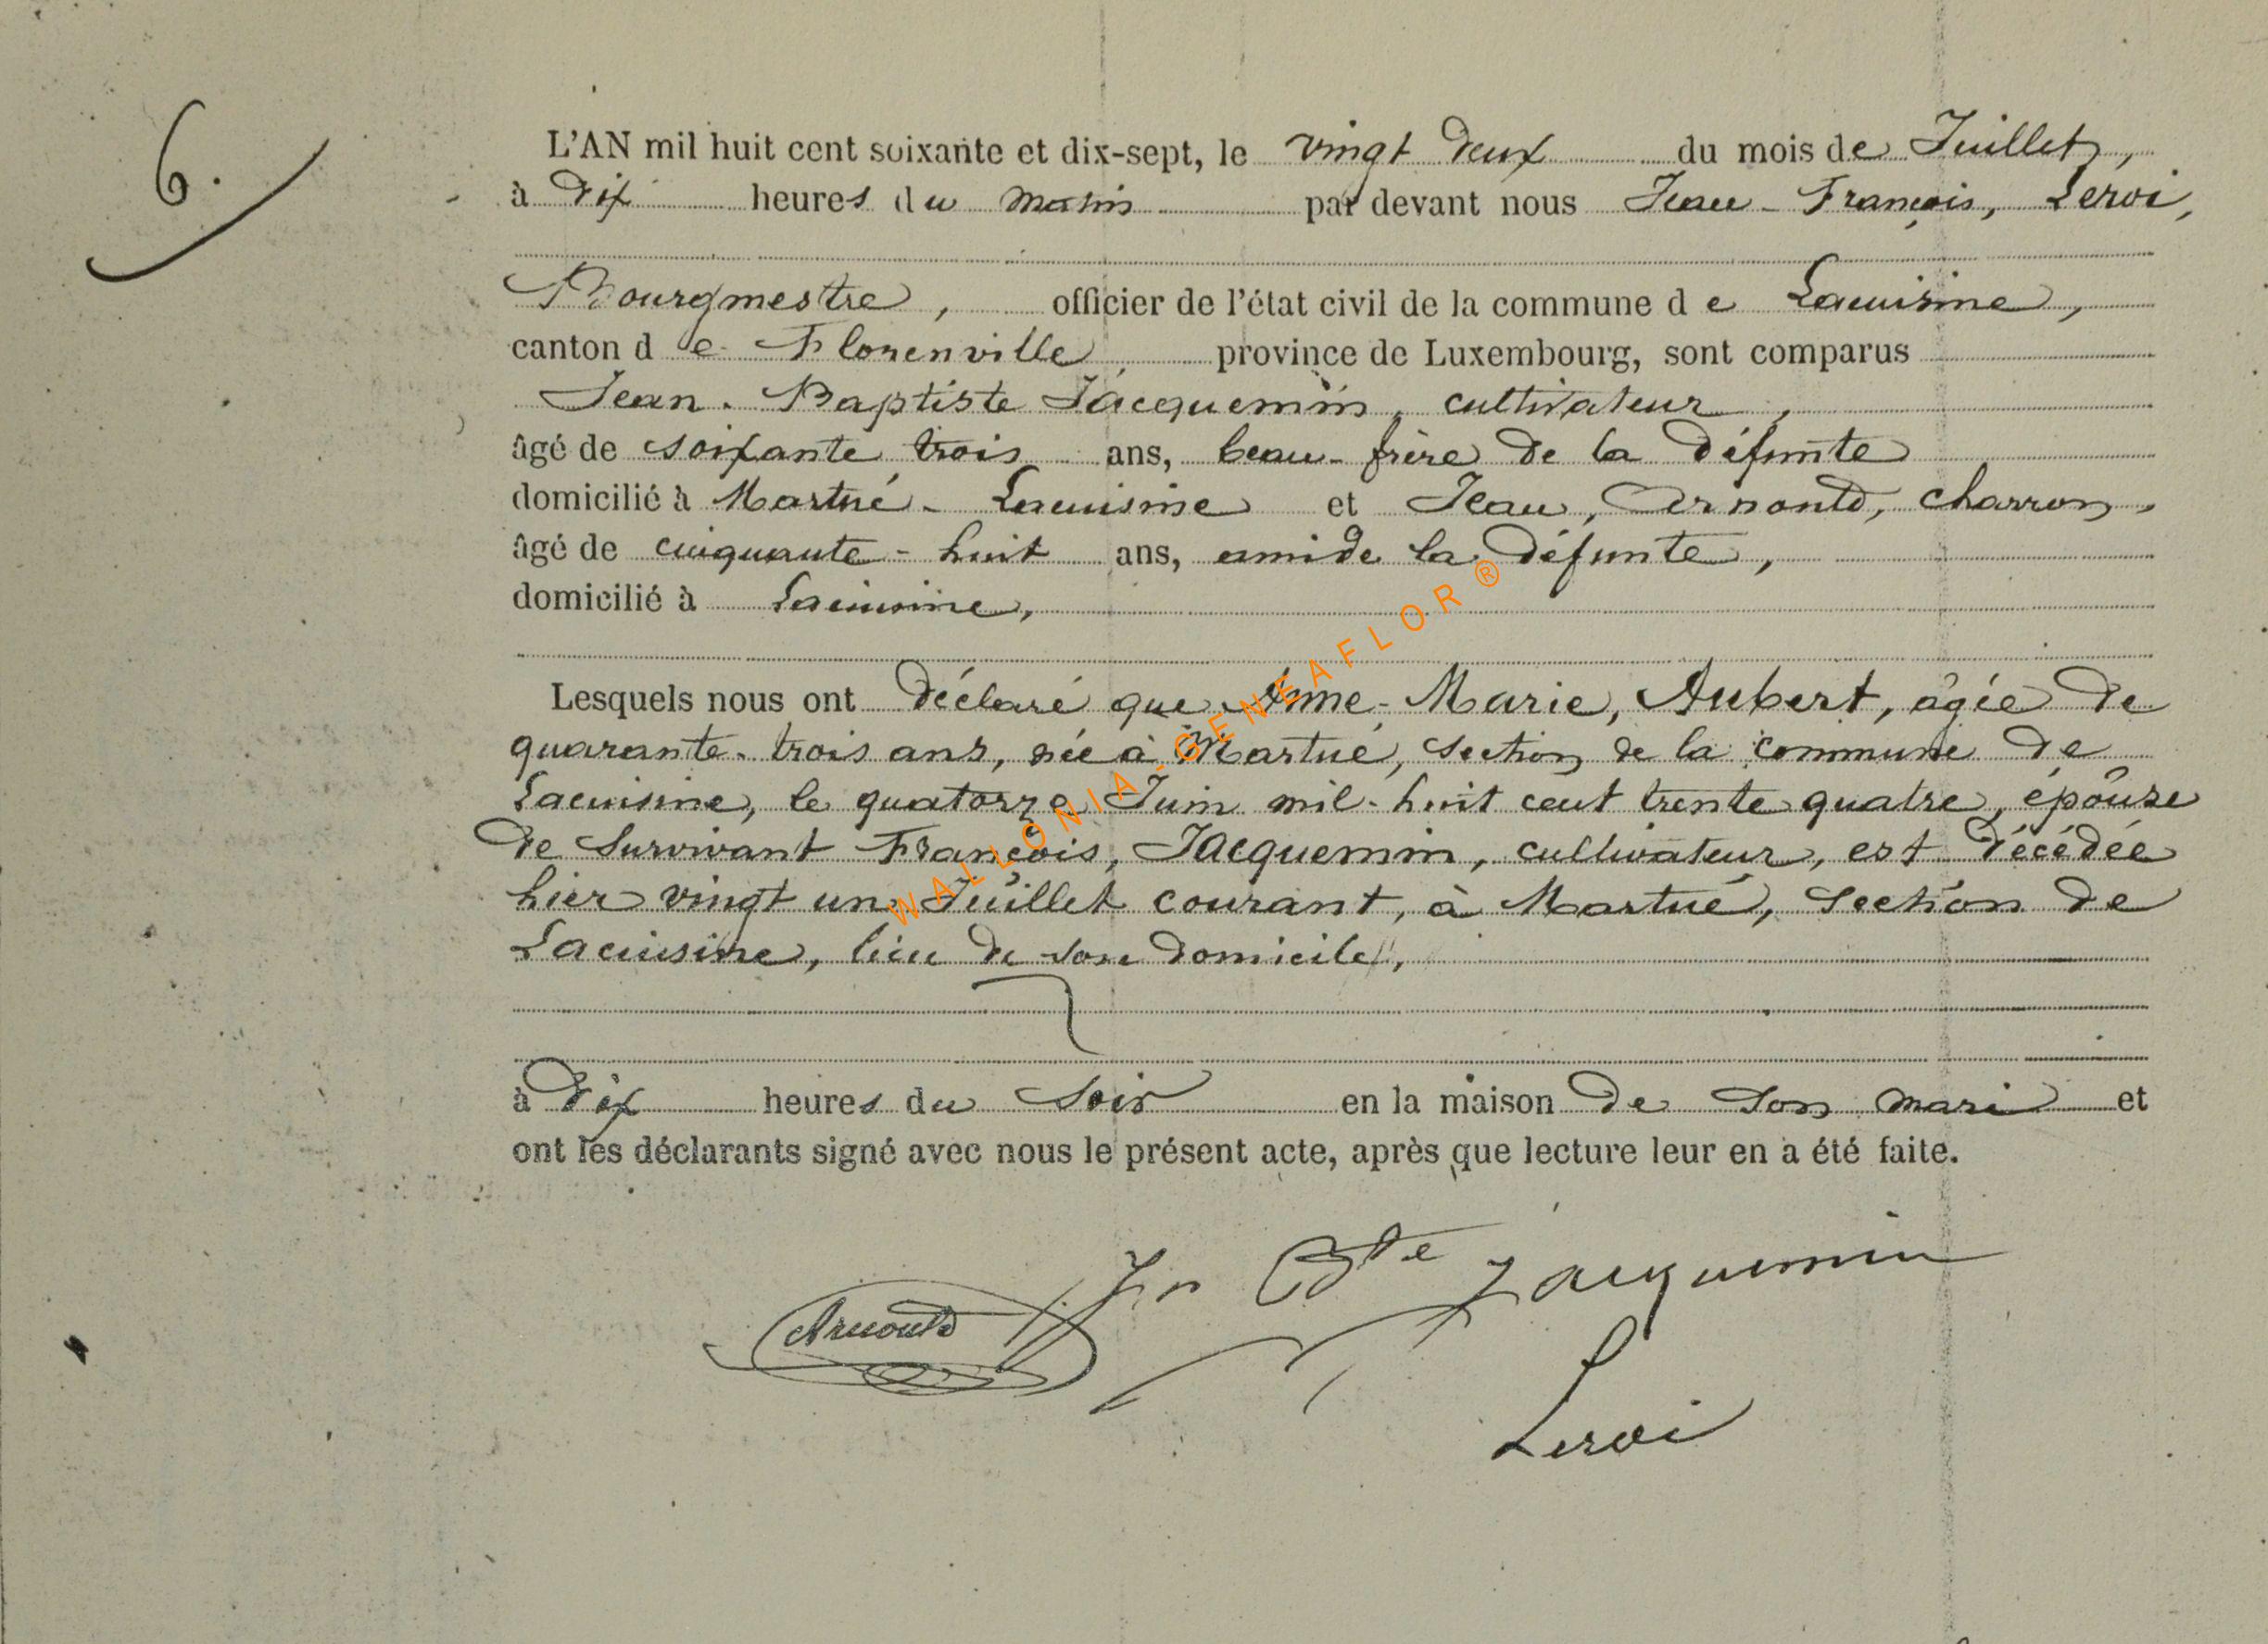 6.
L'AN mil huit cent soixante et dix-sept, le vingt deux du mois de Juillet,
à dix heures du matin par devant nous Jean-François, Leroi,
Bourgmestre, officier de l'état civil de la commune de Lacuisine,
canton de Florenville, province de Luxembourg, sont comparus
Jean-Baptiste Jacquemin, cultivateur,
âgé de soixante trois ans, beau-frère de la défunte
domicilié à Martué-Lacuisine et Jean, Arnould, charron,
âgé de cinquante-huit ans, ami de la défunte,
domicilié à Lacuisine,
Lesquels nous ont déclaré que Anne-Marie, Aubert, âgée de
quarante-trois ans, née à Martué, section de la commune de
Lacuisine, le quatorze Juin mil-huit cent trente quatre, épouse
de survivant François, Jacquemin, cultivateur, est décédée
hier vingt un Juillet courant, à Martué, section de
Lacuisine, lieu de son domicile,
à dix heures du soir en la maison de son mari et
ont les déclarants signé avec nous le présent acte, après que lecture leur en a été faite.
Jn Bte Jacquemin
Arnould
Leroi
WALLONIA-GENEAFLOR®